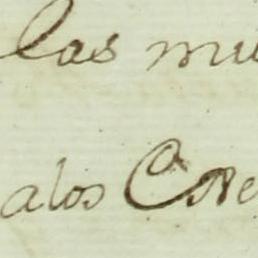 las mu
alos Core